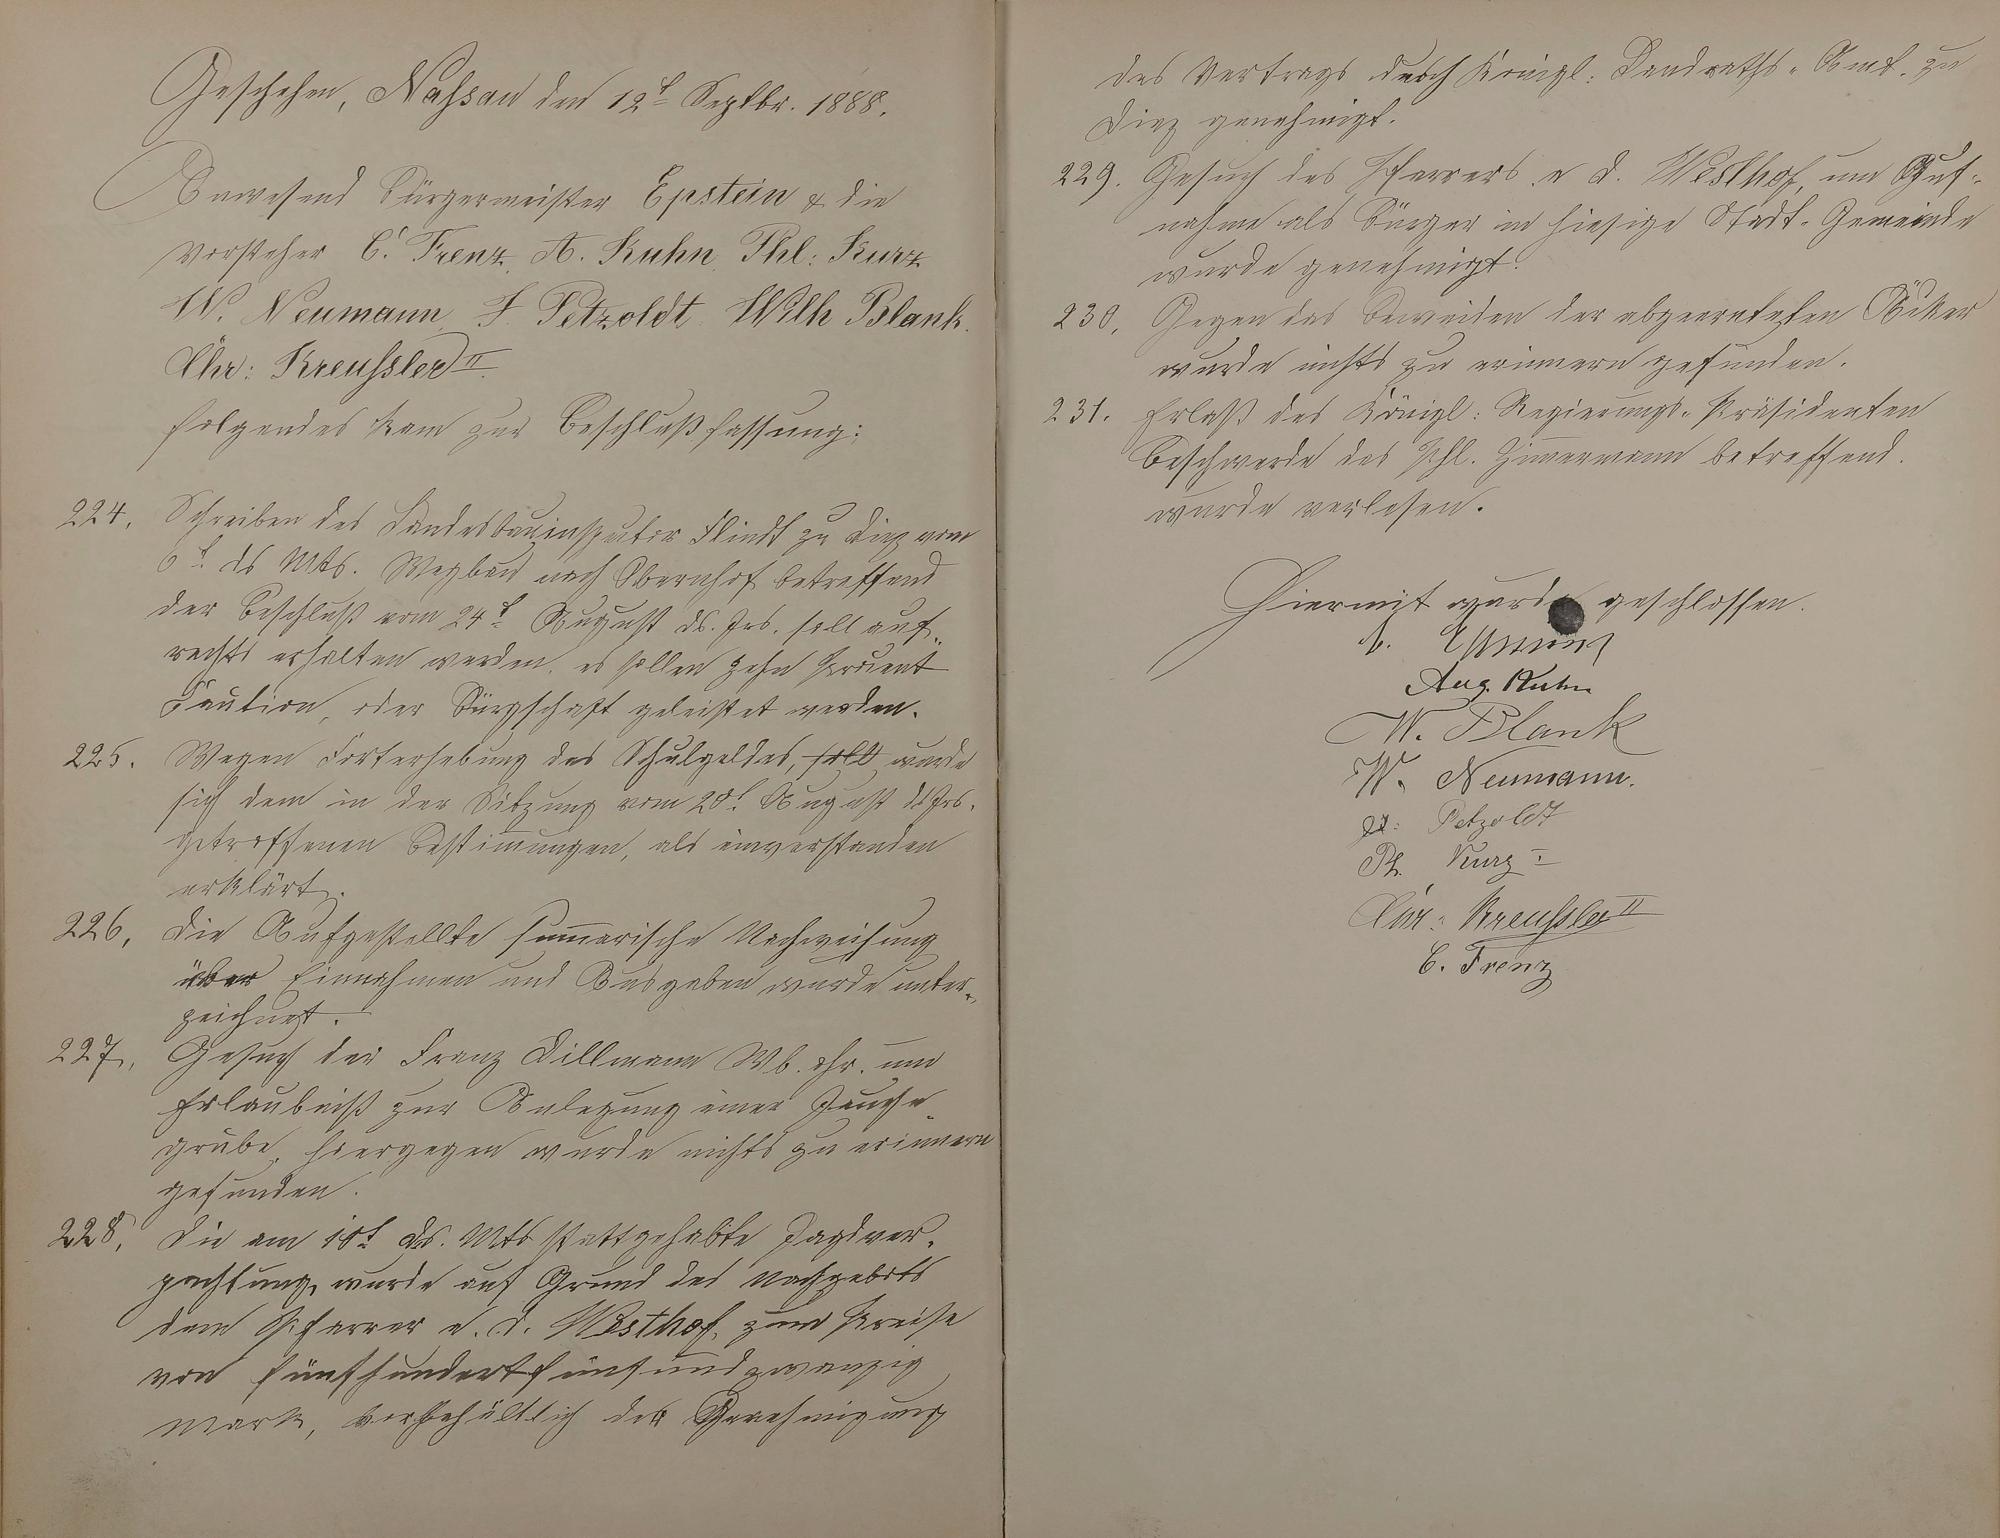 Geschehen, Nassau den 12t. Septbr. 1888.
Anwesend Bürgermeister Epstein & die
Vorsteher C. Frenz, A. Kuhn, Phl: Kurz,
W. Neumann, F. Petzoldt, Wilh Blank.
Chr: Kreussler II.
folgendes kam zur Beschlußfassung:
224. Schreiben des Landesbauinspector Flindt zu Diez vom
6t. ds Mts. Wegbau nach Obernhof betreffend
der Beschluß vom 24t. August ds. Jrs. soll auf-
rechts erhalten werden, es sollen zehn Procent
Caution, oder Bürgschaft geleistet werden.
225. Wegen Forterhebung des Schulgeldes, soll wurde
sich dem in der Sitzung vom 28t. August ds Jrs.
getroffenen Bestimmungen, als einverstanden
erklärt.
226. Die Aufgestellte summarische Nachweisung
über Einnahmen und Ausgaben wurde unter-
zeichnet.
227. Gesuch der Franz Dillmann Wb. ehr. um
Erlaubniß zur Anlegung einer Jauche-
grube, hiergegen wurde nichts zu erinnern
gefunden.
228. Die am 10t. ds. Mts stattgehabte Jagdver-
pachtung, wurde auf Grund des Nachgebots
dem Pfarrer e. d. Westhof, zum Preise
von fünfhundertfünfundzwanzig
Mark, vorbehältlich der Genehmigung
des Vertrags durch Königl: Landraths-Amt. zu
Diez genehmigt.
229. Gesuch des Pfarrers e d. Westhof, um Auf-
nahme als Bürger in hiesige Stadt-Gemeinde
wurde genehmigt.
230. Gegen das Beweiden der abgeernteten Äcker
wurde nichts zu erinnern gefunden.
231. Erlaß des Königl: Regierungs-Präsidenten
Beschwerde des Phl. Zimmermann betreffend.
wurde verlesen.
Hiermit wurde geschlossen.
Aug. Kuhn
W. Blank
W. Neumann.
Petzoldt
Ph. Kurz I
Chr: Kreussler II
C. Frenz